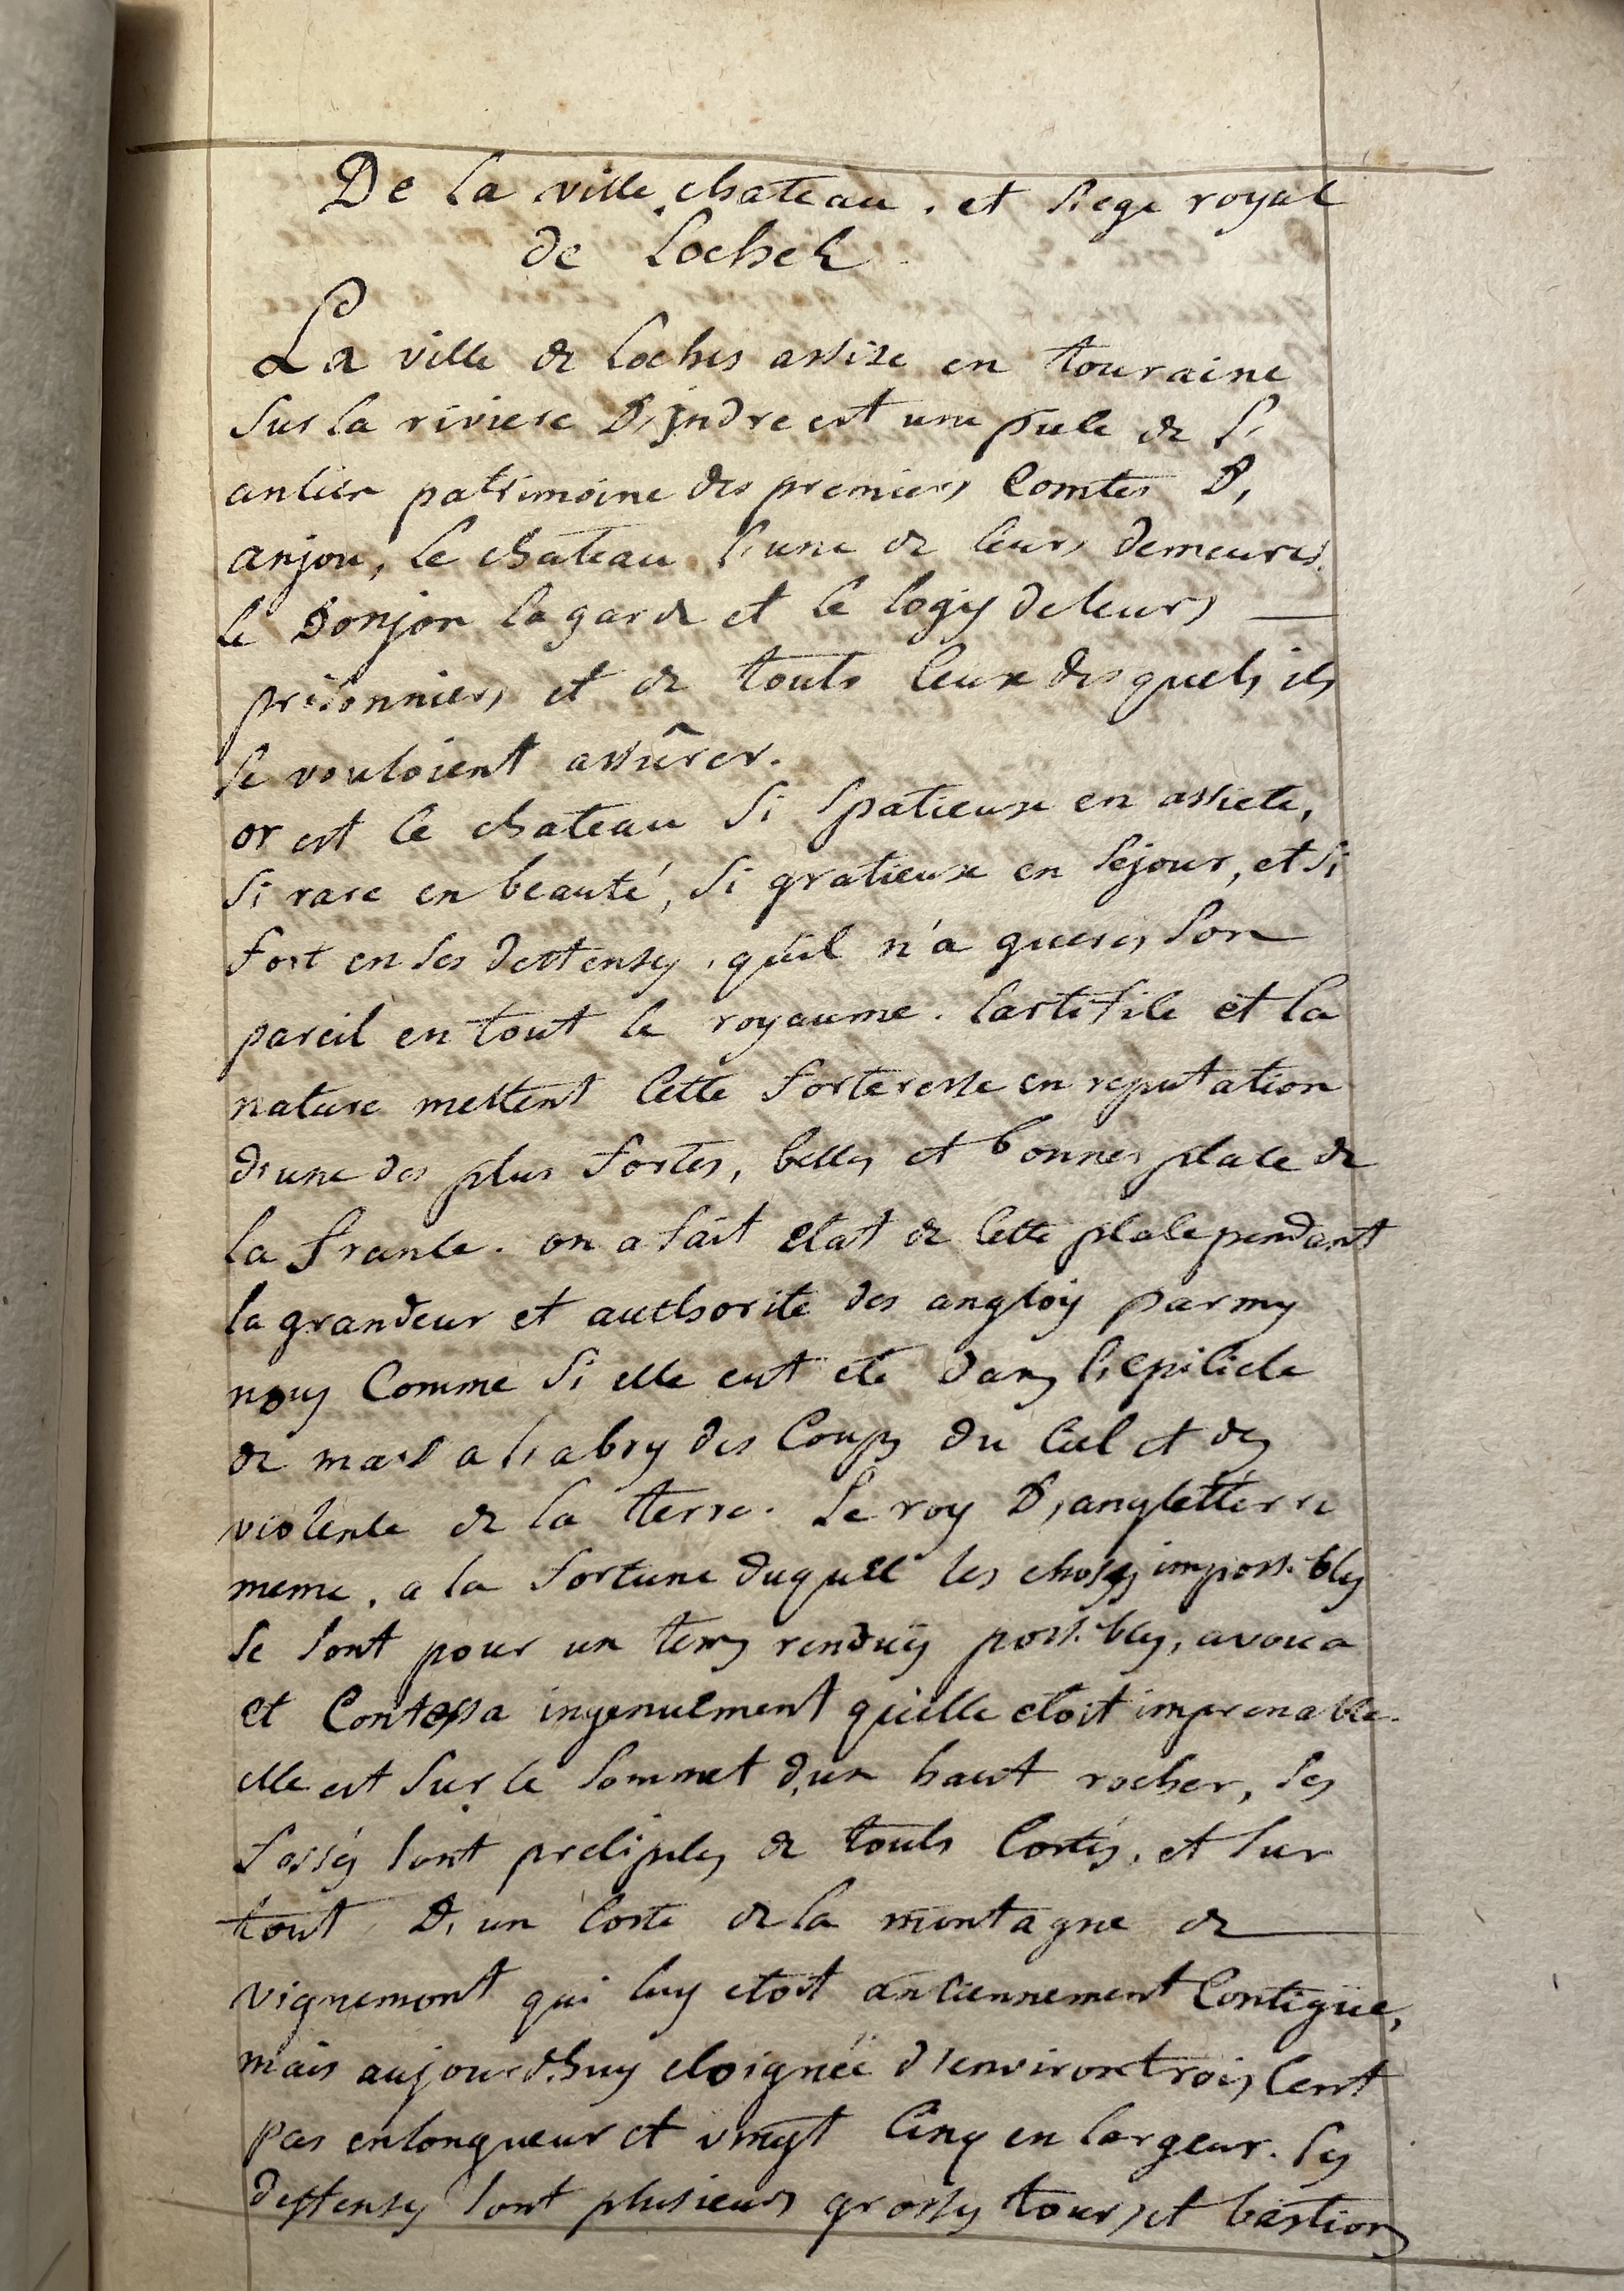 De la ville, chateau, et siege royal
de Loches
La ville de loches assise en touraine
sur la riviere D'jndre est une piece de l'
ancien patrimoine des premiers Comtes D'
anjou, le chateau l'une de leurs demeures.
le Donjon la garde et le logis de leurs
prisonniers et de touts ceux desquels ils
se vouloient assûrer.
or est le chateau si spatieux en assiete,
si rare en beauté, si gratieux en sejour, et si
fort en ses deffenses, qu'il n'a gueres son
pareil en tout le royaume. l'artifice et la
nature mettent cette forteresse en reputation
d'une des plus fortes, belles et bonnes place de
la france. on a fait etat de cette place pendant
la grandeur et authorite des anglois parmy
nous Comme si elle eut eté dans l'epilicle
de mars a l'abry des Coups du Ciel et des
violence de la terre. le roy D'angletterre
meme, a la fortune duquel les choses impossibles
se sont pour un tems renduës possibles, avoua
et Confessa ingenuement qu'elle etoit imprenable.
elle est sur le sommet d'un haut rocher, ses
fossés sont precipices de touts Cortés, et sur
tout D'un Corté de la montagne de
vignemont qui luy etoit anciennement Contiguë,
mais aujourd'huy eloignée d'environ trois Cent
pas en longueur et vingt Cinq en largeur. les
deffenses sont plusieurs grosses tours et bastions